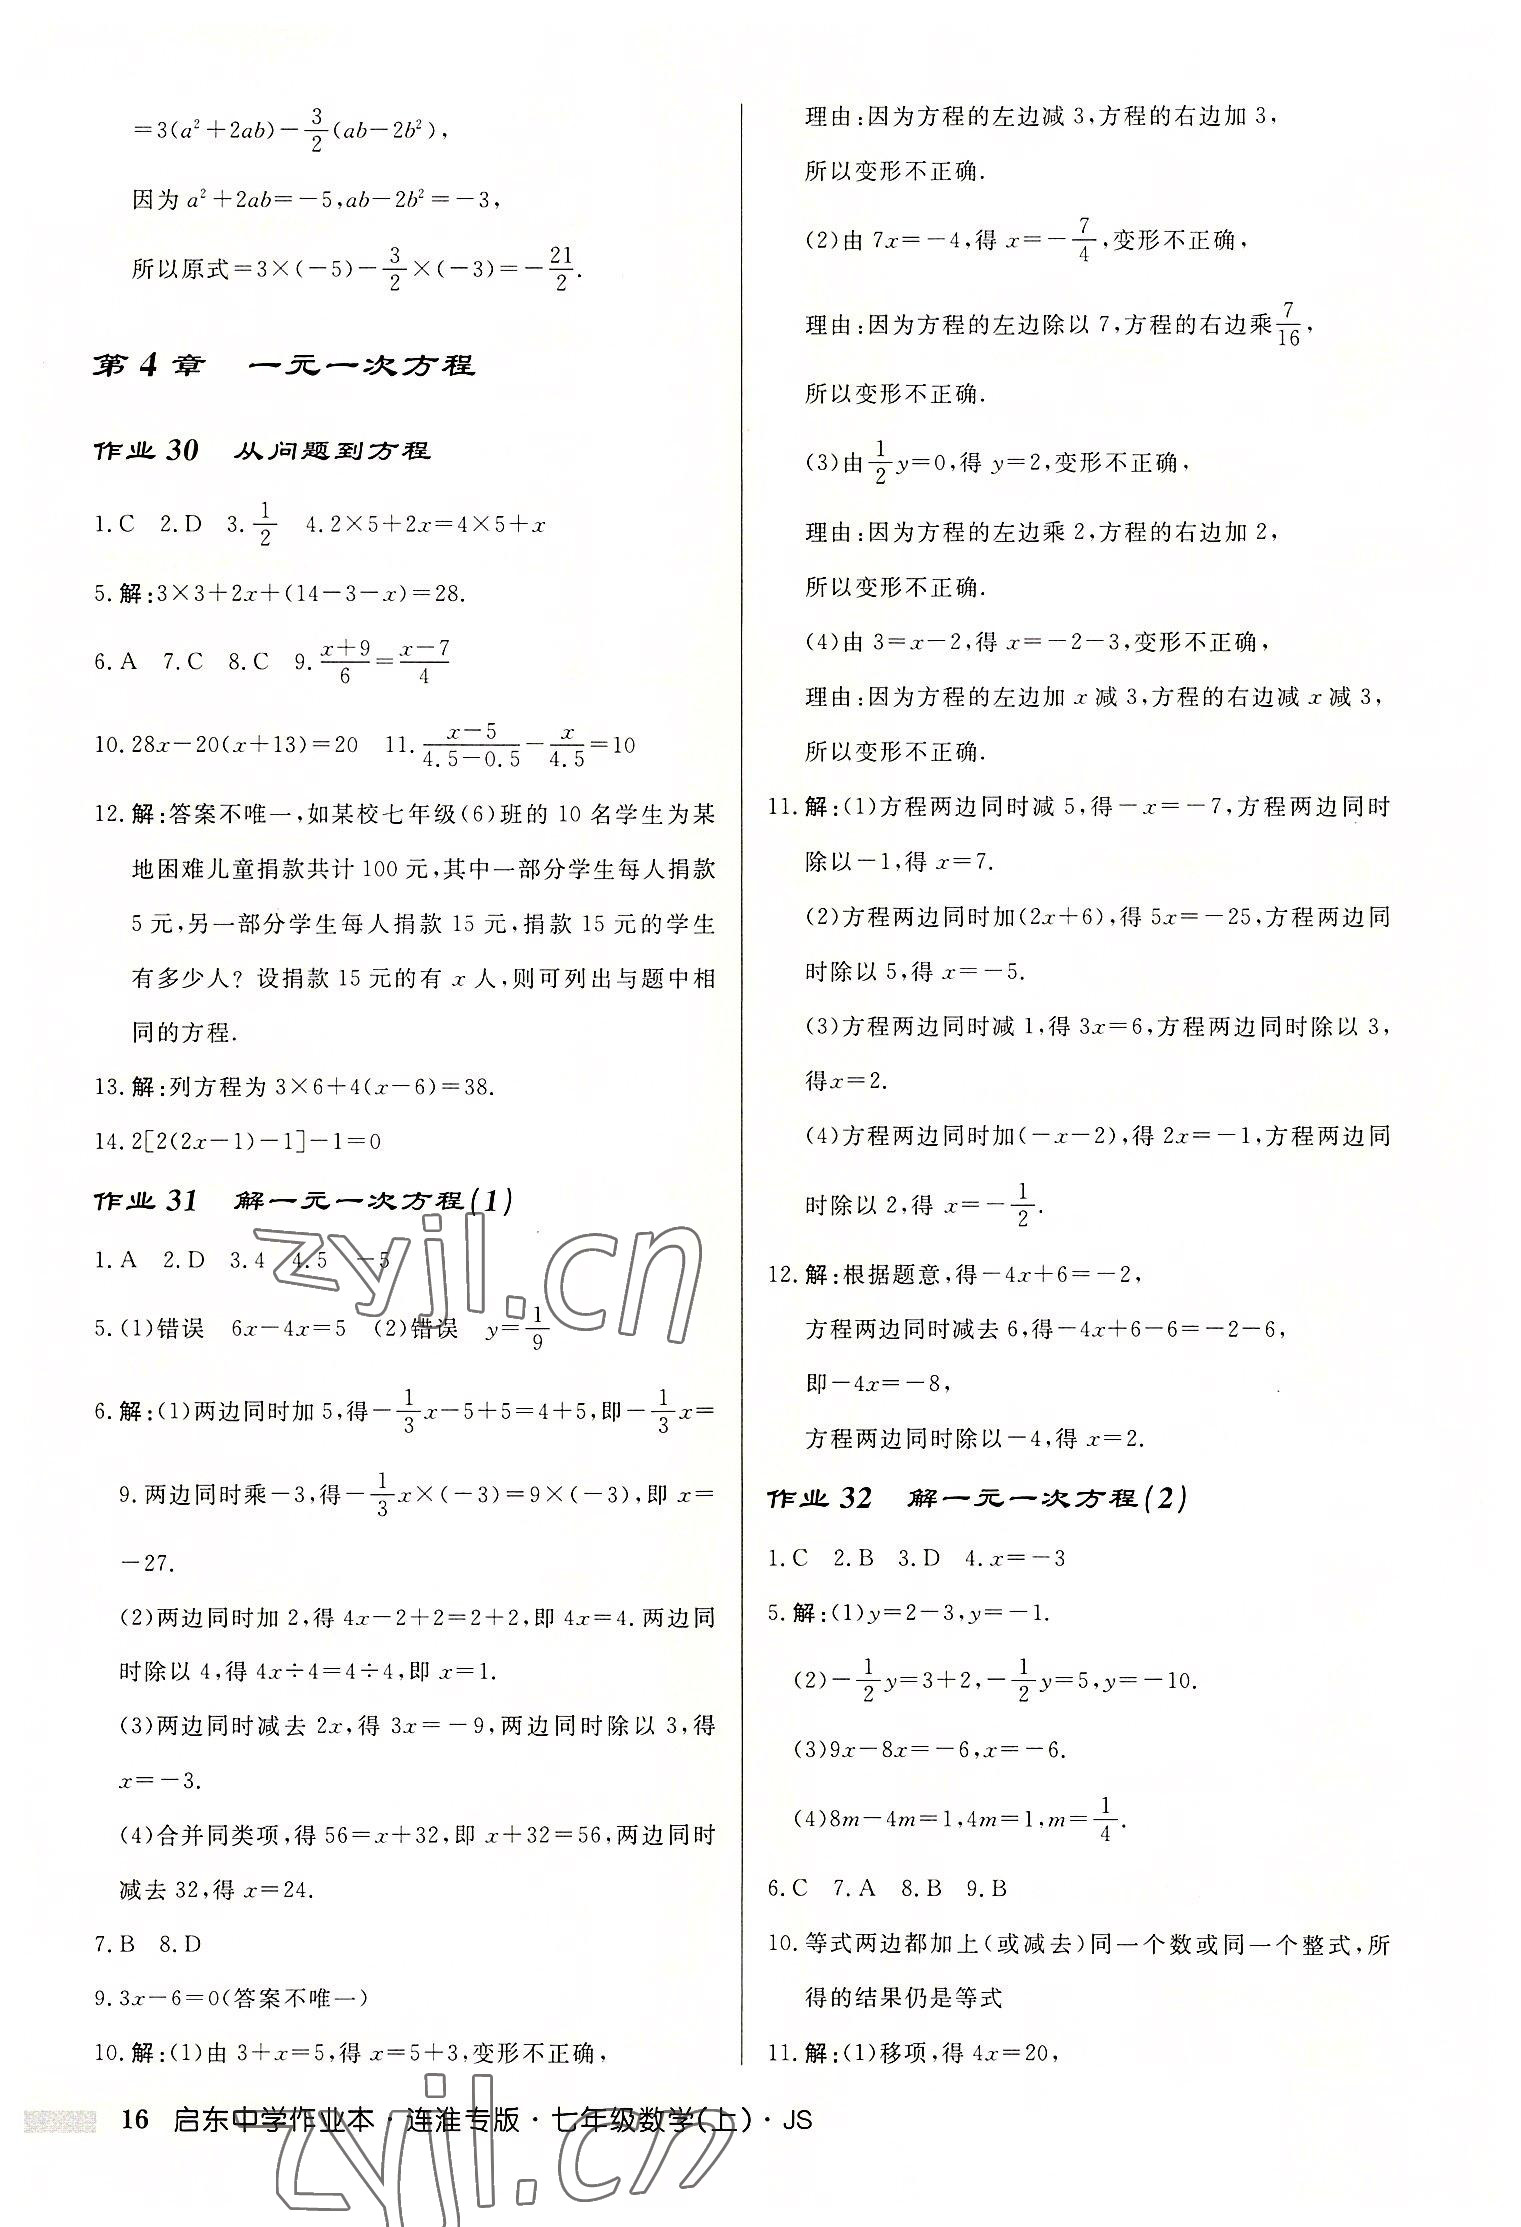 =3(a²+2ab)-3/2(ab-2b²),
因为 a²+2ab=-5,ab-2b²=-3,
所以原式=3×(-5)-3/2×(-3)=-21/2.
第 4 章 一元一次方程
作业 30 从问题到方程
1.C 2.D 3.1/2 4.2×5+2x=4×5+x
5.解:3×3+2x+(14-3-x)=28.
6.A 7.C 8.C 9.(x+9)/6=(x-7)/4
10.28x-20(x+13)=20 11.(x-5)/(4.5-0.5)-x/4.5=10
12.解:答案不唯一,如某校七年级(6)班的 10 名学生为某
地困难儿童捐款共计 100 元,其中一部分学生每人捐款
5 元,另一部分学生每人捐款 15 元,捐款 15 元的学生
有多少人? 设捐款 15 元的有 x 人,则可列出与题中相
同的方程.
13.解:列方程为 3×6+4(x-6)=38.
14.2[2(2x-1)-1]-1=0
作业 31 解一元一次方程(1)
1.A 2.D 3.4 4.5 -5
5.(1)错误 6x-4x=5 (2)错误 y=1/9
6.解:(1)两边同时加 5,得-1/3x-5+5=4+5,即-1/3x=
9.两边同时乘-3,得-1/3x×(-3)=9×(-3),即 x=
-27.
(2)两边同时加 2,得 4x-2+2=2+2,即 4x=4.两边同
时除以 4,得 4x÷4=4÷4,即 x=1.
(3)两边同时减去 2x,得 3x=-9,两边同时除以 3,得
x=-3.
(4)合并同类项,得 56=x+32,即 x+32=56,两边同时
减去 32,得 x=24.
7.B 8.D
9.3x-6=0(答案不唯一)
10.解:(1)由 3+x=5,得 x=5+3,变形不正确,
理由:因为方程的左边减 3,方程的右边加 3,
所以变形不正确.
(2)由 7x=-4,得 x=-7/4,变形不正确,
理由:因为方程的左边除以 7,方程的右边乘7/16,
所以变形不正确.
(3)由1/2y=0,得 y=2,变形不正确,
理由:因为方程的左边乘 2,方程的右边加 2,
所以变形不正确.
(4)由 3=x-2,得 x=-2-3,变形不正确,
理由:因为方程的左边加 x 减 3,方程的右边减 x 减 3,
所以变形不正确.
11.解:(1)方程两边同时减 5,得-x=-7,方程两边同时
除以-1,得 x=7.
(2)方程两边同时加(2x+6),得 5x=-25,方程两边同
时除以 5,得 x=-5.
(3)方程两边同时减 1,得 3x=6,方程两边同时除以 3,
得x=2.
(4)方程两边同时加(-x-2),得 2x=-1,方程两边同
时除以 2,得 x=-1/2.
12.解:根据题意,得-4x+6=-2,
方程两边同时减去 6,得-4x+6-6=-2-6,
即-4x=-8,
方程两边同时除以-4,得 x=2.
作业 32 解一元一次方程(2)
1.C 2.B 3.D 4.x=-3
5.解:(1)y=2-3,y=-1.
(2)-1/2y=3+2,-1/2y=5,y=-10.
(3)9x-8x=-6,x=-6.
(4)8m-4m=1,4m=1,m=1/4.
6.C 7.A 8.B 9.B
10.等式两边都加上(或减去)同一个数或同一个整式,所
得的结果仍是等式
11.解:(1)移项,得 4x=20,
16 启东中学作业本·连淮专版·七年级数学(上)·JS
zyjl.cn
zyjl.cn